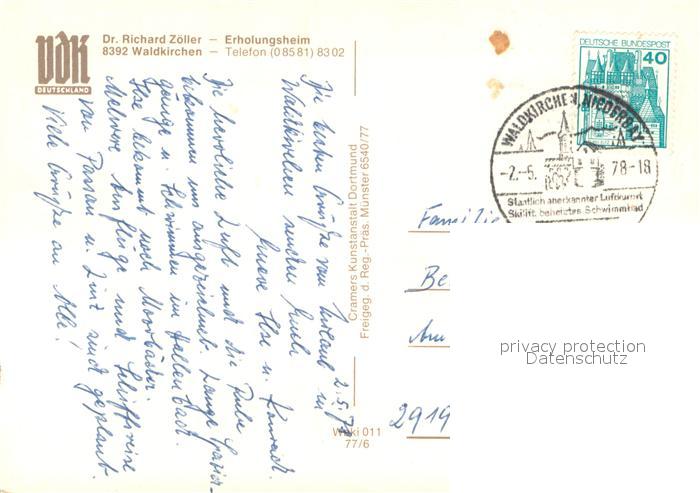 VdK
DEUTSCHLAND
Dr. Richard Zöller — Erholungsheim
8392 Waldkirchen — Telefon (0 85 81) 83 02
2.5.78
Die besten Grüße vom Urlaub in
Waldkirchen senden Euch
Eure Ilse u. Konrad.
Die herrliche Luft und die Ruhe
bekommen uns ausgezeichnet. Lange Spazier-
gänge u. Schwimmen im Hallenbad.
Ilse bekommt noch Moorbäder.
Mehrere Ausflüge und Schiffsreise
von Passau n. Linz sind geplant.
Viele Grüße an Alle!
Cramers Kunstanstalt Dortmund
Freigeg. d. Reg.-Präs. Münster 6540/77
Waki 011
77/6
DEUTSCHE BUNDESPOST
40
WALDKIRCHEN, NIEDERBAY
-2.-5. 78-18
Staatlich anerkannter Luftkurort
Skilift, beheiztes Schwimmbad
Familie
Be
Am
2919
privacy protection
Datenschutz